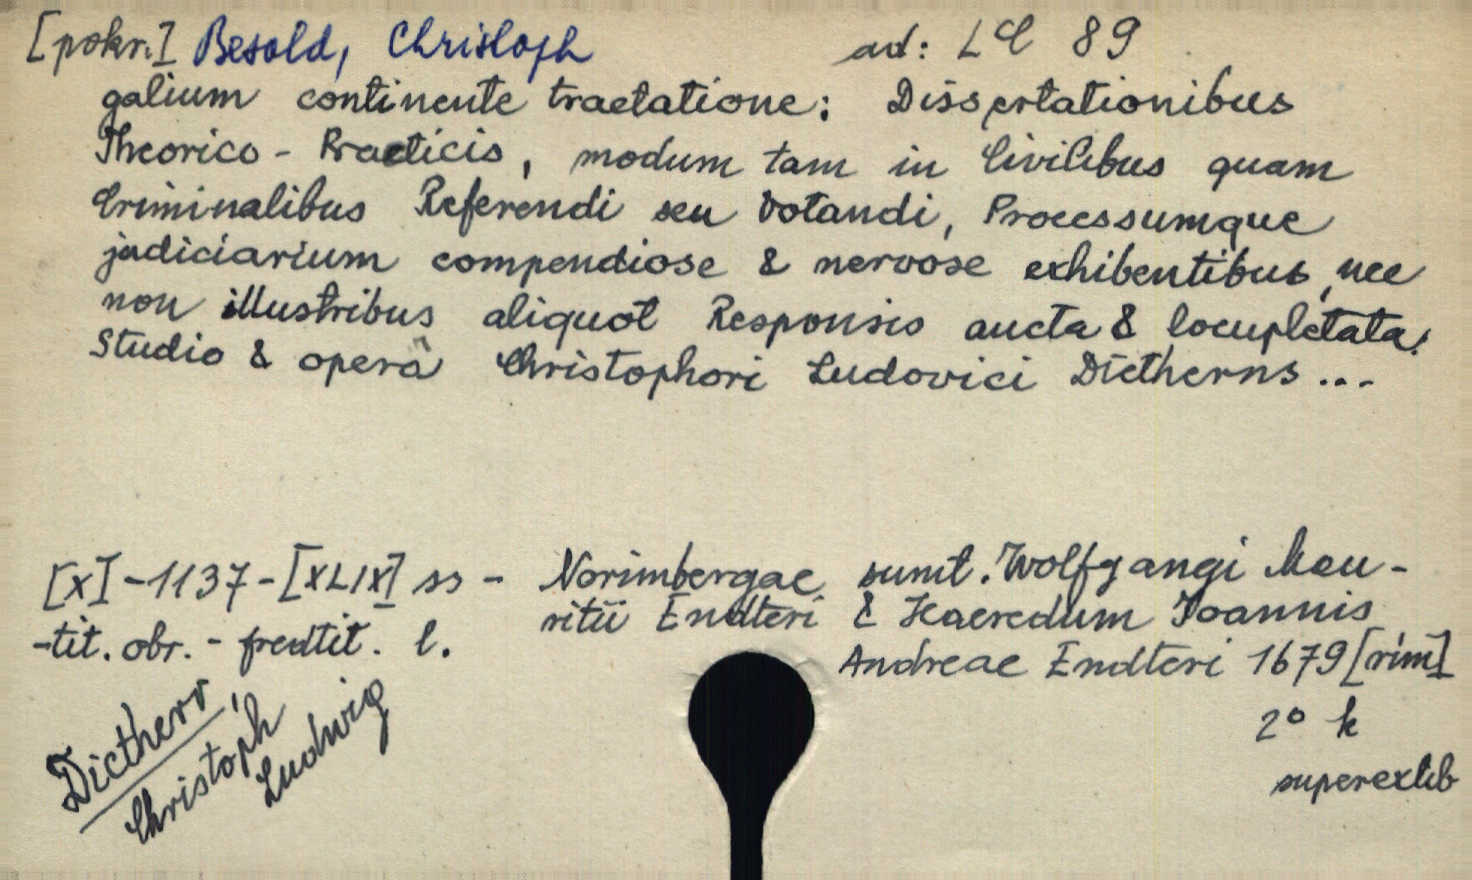 [pokr.] Besold, Christoph ad: LC 89
galium continente tractatione: Dissertationibus
Theorico - Practicis, modum tam in Civilibus quam
Criminalibus Referendi seu Votandi, Processumque
judiciarium compendiose & nervose exhibentibus, nec
non illustribus aliquot Responsis aucta & locupletata.
Studio & operâ Christophori Ludovici Dietherns ...
[X] - 1137 - [XLIX] ss - Norimbergae, sumt. Wolfgangi Mau-
- tit. obr. - fredtit. l. ritii Endteri & Haeredum Joannis
Andreae Endteri 1679 [rím]
2° k
superexlib
Dietherr,
Christoph
Ludwig